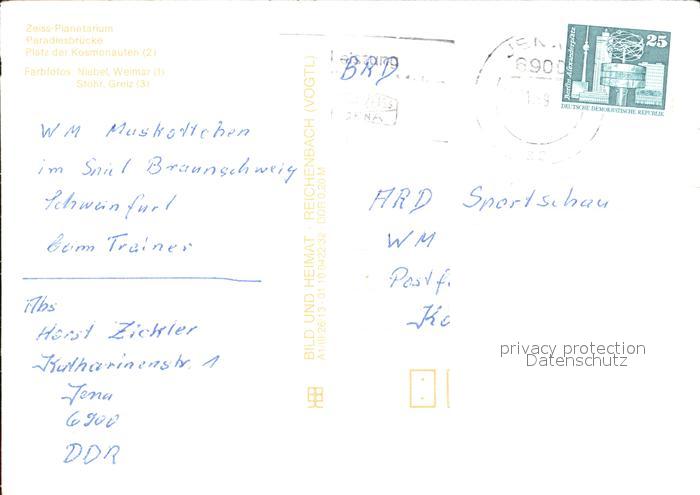 Zeiss-Planetarium
Paradiesbrücke
Platz der Kosmonauten (2)
Farbfotos: Niebel, Weimar (1)
Stohr, Greiz (3)
WM Maskottchen
im Spiel Braunschweig
Schweinfurt
beim Trainer
Abs
Horst Zickler
Katharinenstr. 1
Jena
6900
DDR
BILD UND HEIMAT · REICHENBACH (VOGTL)
BRD
JENA
690
25
Berlin-Alexanderplatz
DEUTSCHE DEMOKRATISCHE REPUBLIK
ARD Sportschau
WM
Postf
Kö
privacy protection
Datenschutz